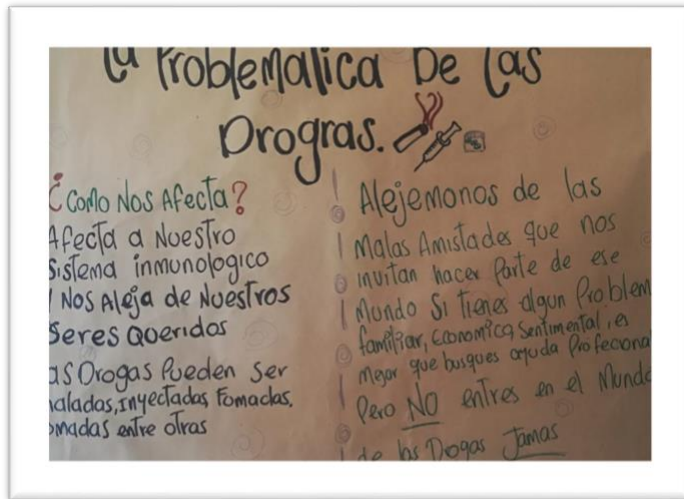 La Problematica De las
Drogras.
¿Como Nos Afecta?
Afecta a Nuestro
Sistema inmunologico
Nos Aleja de Nuestros
Seres Queridos
as Drogas Pueden Ser
haladas, Inyectadas, Fomadas,
omadas entre otras
Alejemonos de las
Malas Amistades que nos
invitan hacer Parte de ese
Mundo Si tienes algun Problem
familiar, Economico, Sentimental, es
mejor que busques ayuda Profeciona
Pero NO entres en el Mundo
de las Drogas Jamas